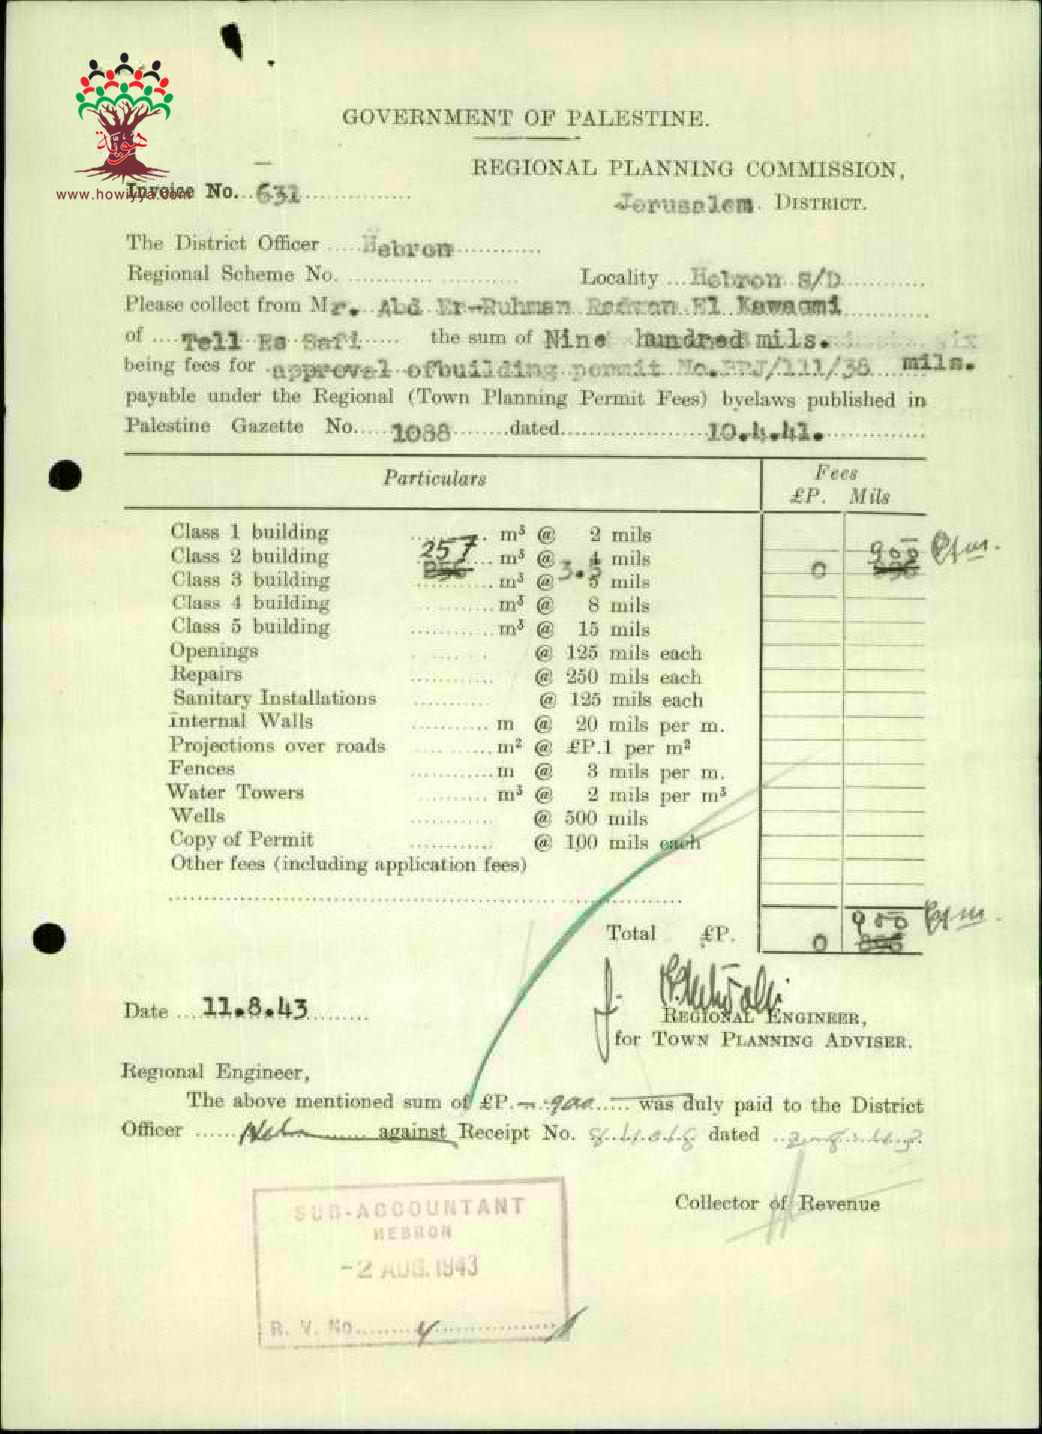 هوية
www.howiyya.com
GOVERNMENT OF PALESTINE.
REGIONAL PLANNING COMMISSION,
Invoice No. 631
Jerusalem. DISTRICT.
The District Officer Hebron
Regional Scheme No. Locality Hebron S/D
Please collect from Mr. Abd Er-Ruhman Redwan El Kawasmi
of Tell Es Safi the sum of Nine hundred mils. six
being fees for approval of building permit No.RPJ/111/38 mils.
payable under the Regional (Town Planning Permit Fees) byelaws published in
Palestine Gazette No. 1088 dated 10.4.41.
Particulars Fees
£P. Mils
Class 1 building m³ @ 2 mils
Class 2 building 257 m³ @ 4 mils 0 900
Class 3 building 256 m³ @ 3.5 5 mils 896
Class 4 building m³ @ 8 mils
Class 5 building m³ @ 15 mils
Openings @ 125 mils each
Repairs @ 250 mils each
Sanitary Installations @ 125 mils each
Internal Walls m @ 20 mils per m.
Projections over roads m² @ £P.1 per m²
Fences m @ 3 mils per m.
Water Towers m³ @ 2 mils per m³
Wells @ 500 mils
Copy of Permit @ 100 mils each
Other fees (including application fees)
Total £P. 0 900 896
Date 11.8.43
REGIONAL ENGINEER,
for TOWN PLANNING ADVISER.
Regional Engineer,
The above mentioned sum of £P.- 900 was duly paid to the District
Officer against Receipt No. dated
Collector of Revenue
SUB-ACCOUNTANT
HEBRON
-2 AUG. 1943
R. V. No. 4